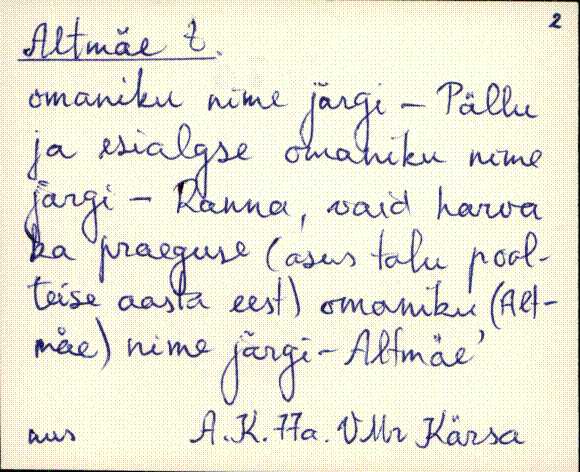 2
Altmäe t.
omaniku nime järgi – Pällu
ja esialgse omaniku nime
järgi – Ranna, vaid harva
ka praeguse (asus talu pool-
teise aasta eest) omaniku (Alt-
mäe) nime järgi – Altmäe'
A.K. 77a. VMr Kärsa